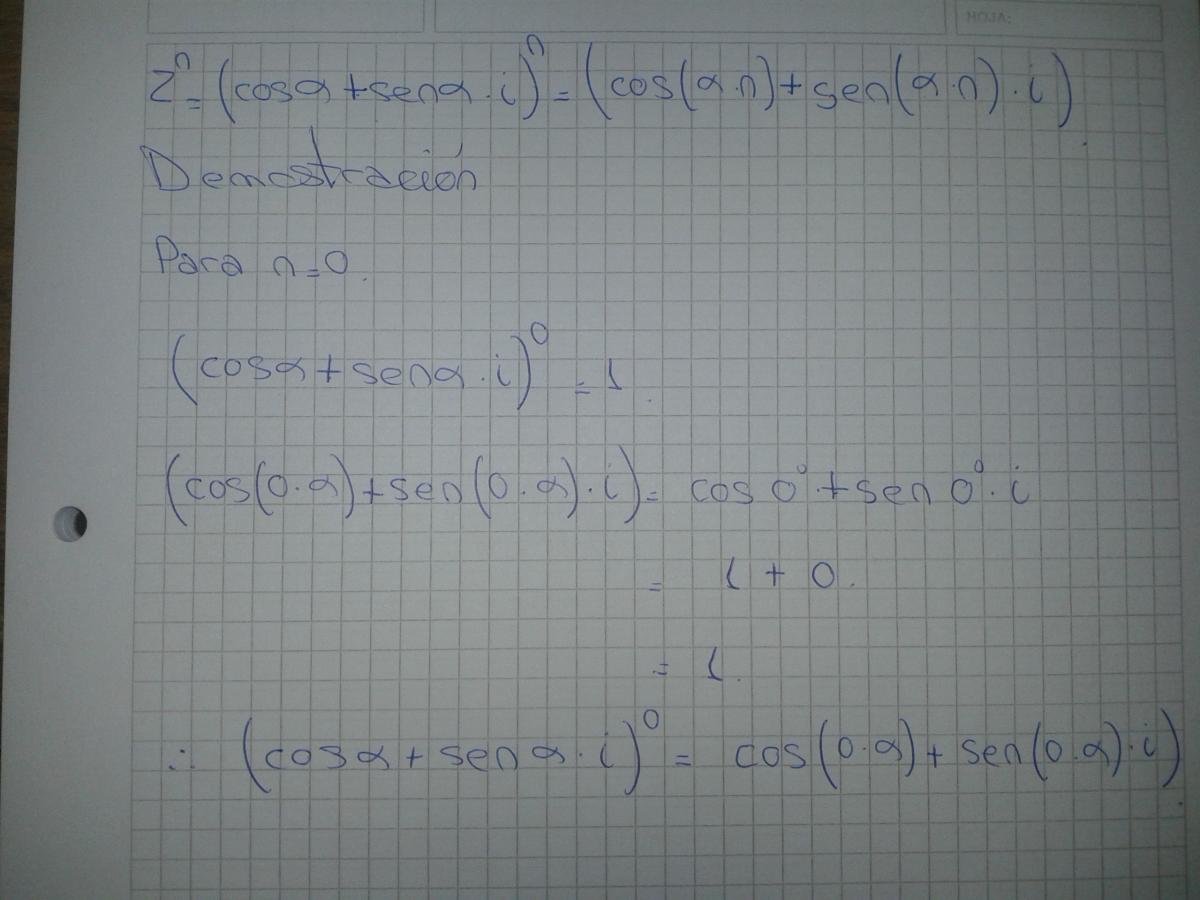 HOJA:
Zⁿ = (cosα + senα · i)ⁿ = (cos(α·n) + sen(α·n) · i)
Demostración
Para n=0.
(cosα + senα · i)⁰ = 1.
(cos(0·α) + sen(0·α) · i) = cos 0° + sen 0° · i
= 1 + 0.
= 1.
∴ (cosα + senα · i)⁰ = cos(0·α) + sen(0·α) · i)